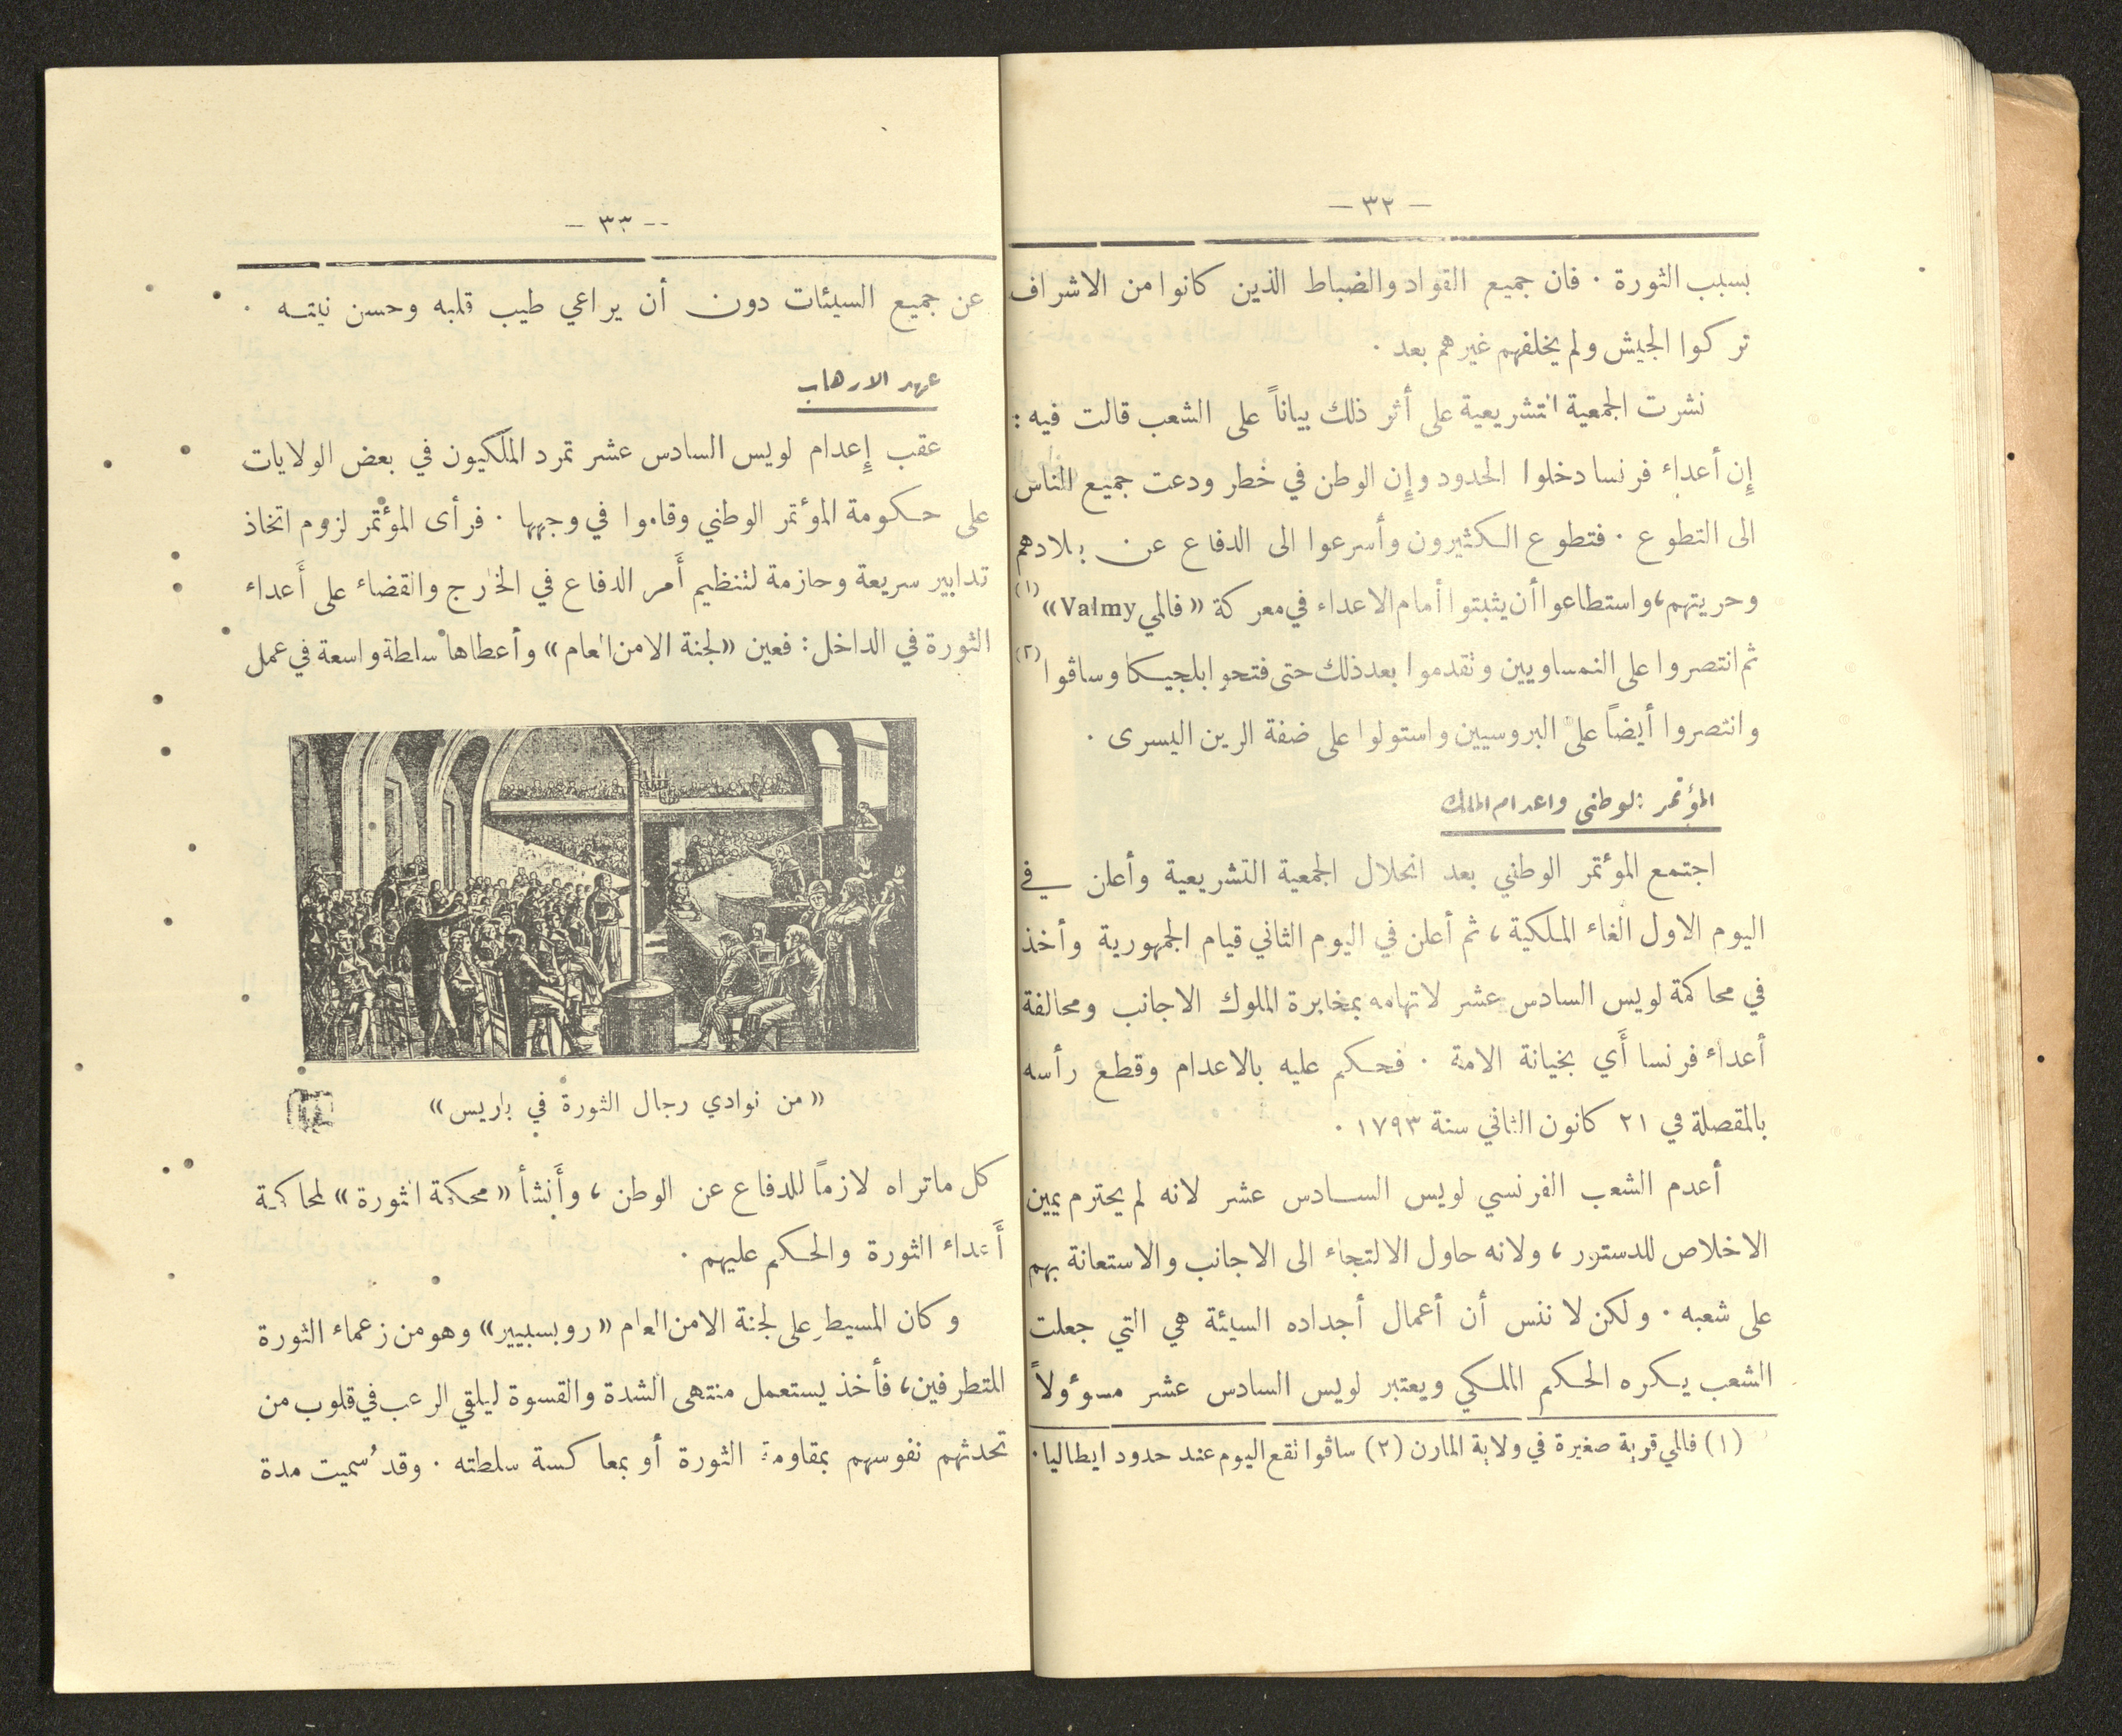 — ٣٢ —
بسبب الثورة . فان جميع القواد والضباط الذين كانوا من الاشراف
تركوا الجيش ولم يخلفهم غيرهم بعد .
نشرت الجمعية التشريعية على أثر ذلك بياناً على الشعب قالت فيه :
إِن أعداء فرنسا دخلوا الحدود وإِن الوطن في خطر ودعت جميع الناس
الى التطوع . فتطوع الكثيرون وأسرعوا الى الدفاع عن بلادهم
وحريتهم، واستطاعوا أن يثبتوا أمام الاعداء في معركة « فالمي Valmy » (١)
ثم انتصروا على النمساويين وتقدموا بعد ذلك حتى فتحوا بلجيكا وساڤوا (٢)
وانتصروا أيضاً على البروسيين واستولوا على ضفة الرين اليسرى .
المؤتمر الوطني واعدام الملك
اجتمع المؤتمر الوطني بعد انحلال الجمعية التشريعية وأعلن في
اليوم الاول الغاء الملكية ، ثم أعلن في اليوم الثاني قيام الجمهورية وأخذ
في محاكمة لويس السادس عشر لاتهامه بمخابرة الملوك الاجانب ومحالفة
أعداء فرنسا أَي بخيانة الامة . فحكم عليه بالاعدام وقطع رأسه
بالمقصلة في ٢١ كانون الثاني سنة ١٧٩٣ .
أعدم الشعب الفرنسي لويس السادس عشر لانه لم يحترم يمين
الاخلاص للدستور ، ولانه حاول الالتجاء الى الاجانب والاستعانة بهم
على شعبه . ولكن لا ننس أن أعمال أجداده السيئة هي التي جعلت
الشعب يكره الحكم الملكي ويعتبر لويس السادس عشر مسوؤولاً
(١) فالمي قرية صغيرة في ولاية المارن (٢) ساڤوا تقع اليوم عند حدود ايطاليا .
— ٣٣ —
عن جميع السيئات دون أن يراعي طيب قلبه وحسن نيته .
عهد الارهاب
عقب إِعدام لويس السادس عشر تمرد الملكيون في بعض الولايات
على حكومة المؤتمر الوطني وقاموا في وجهها . فرأى المؤتمر لزوم اتخاذ
تدابير سريعة وحازمة لتنظيم أَمر الدفاع في الخارج والقضاء على أَعداء
الثورة في الداخل : فعين « لجنة الامن العام » وأعطاها سلطة واسعة في عمل
« من نوادي رجال الثورة في باريس »
كل ماتراه لازماً للدفاع عن الوطن ، وأَنشأ « محكمة الثورة » لمحاكمة
أَعداء الثورة والحكم عليهم .
وكان المسيطر على لجنة الامن العام « روبسبيير » وهو من زعماء الثورة
المتطرفين، فأخذ يستعمل منتهى الشدة والقسوة ليلقي الرعب في قلوب من
تحدثهم نفوسهم بمقاومة الثورة أو بمعاكسة سلطته . وقد سُميت مدة